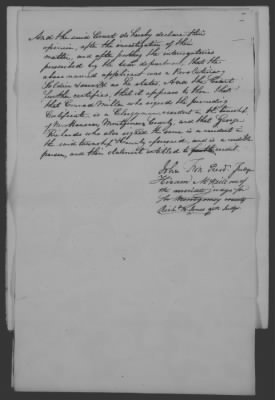 And the said Court do hereby declare their
opinion, after the investigation of the
matter, and after putting the interrogatories
prescribed by the War department, that the
above named applicant was a Revolutionary
Soldier and served as he states. And the Court
further certifies, that it appears to them that
that Conrad Miller who signed the preceding
Certificate is a Clergyman resident in the township
of Montgomery County, and that George
Richards who also signed the same is a resident
in the said township & County aforesaid, and is a credible
person, and their statement is entitled to credit.
John Fox Presdt Judge
Hiram McNeill one of
the associate judges for
the Montgomery county
Judge